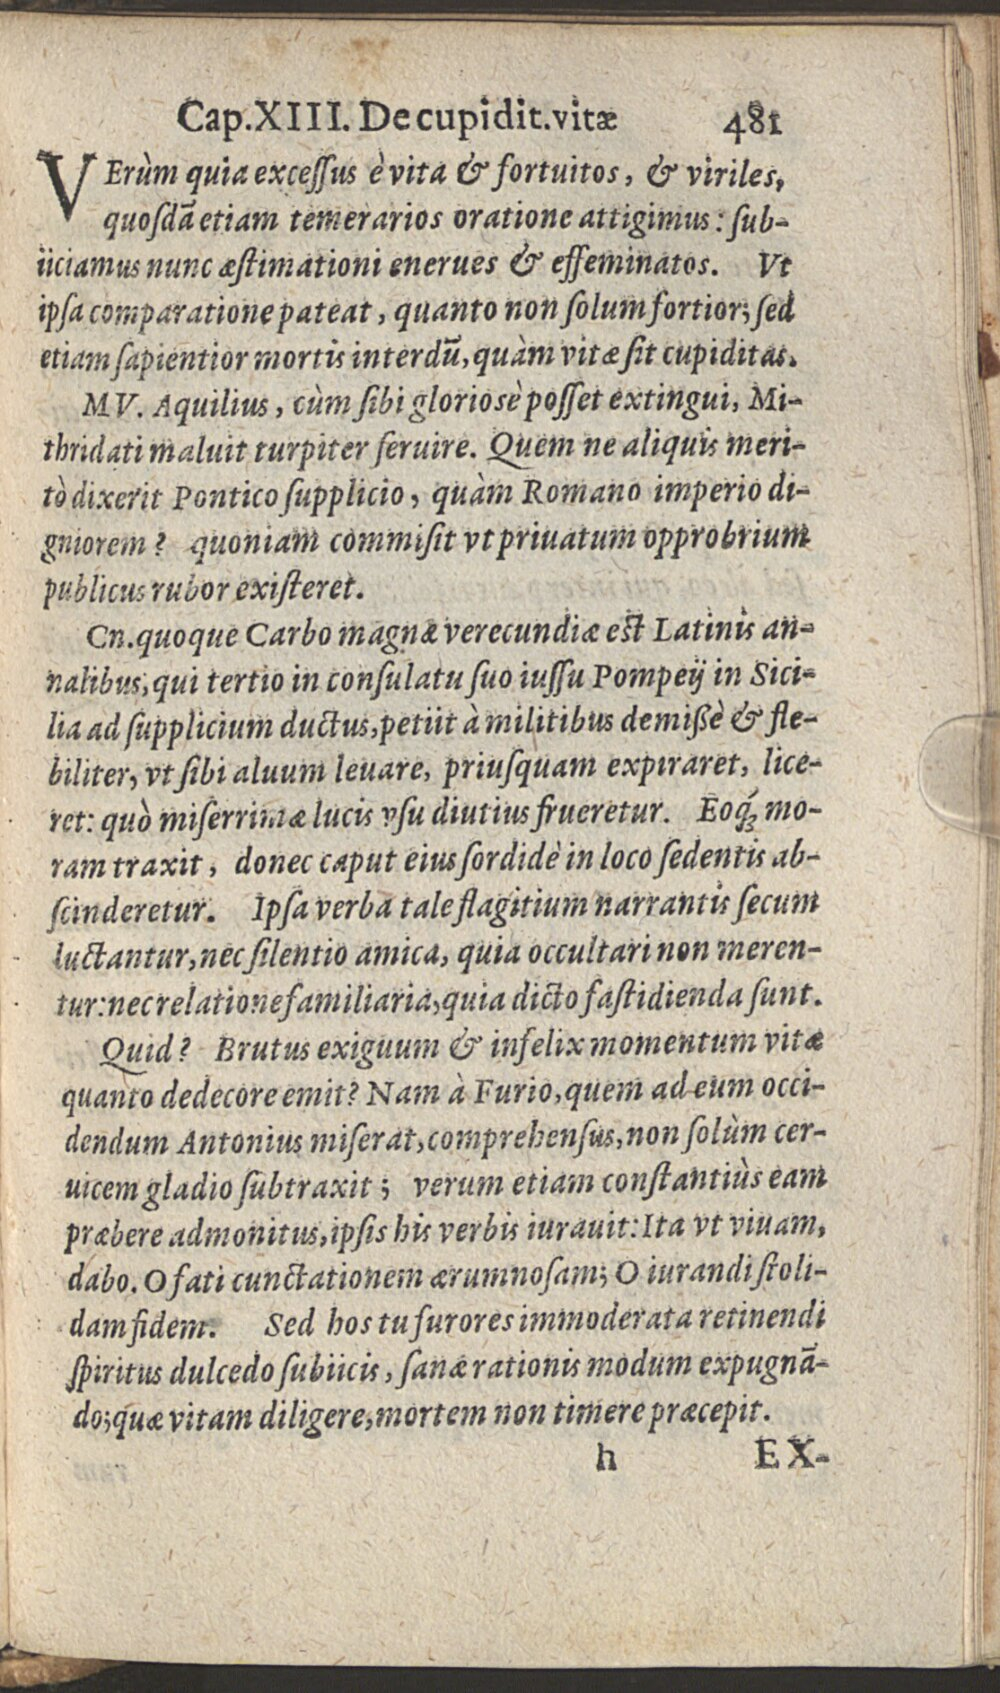 Cap. XIII. De cupidit. vitæ 481
VErùm quia exceſſus è vita & fortuitos, & viriles,
quoſdã etiam temerarios oratione attigimus: ſub-
iiciamus nunc æſtimationi enerues & effeminatos. Vt
ipſa comparatione pateat, quanto non ſolum fortior; ſed
etiam ſapientior mortis interdũ, quàm vitæ ſit cupiditas.
MV. Aquilius, cùm ſibi glorioſè poſſet extingui, Mi-
thridati maluit turpiter ſeruire. Quem ne aliquis meri-
tò dixerit Pontico ſupplicio, quàm Romano imperio di-
gniorem? quoniam commiſit vt priuatum opprobrium
publicus rubor exiſteret.
Cn. quoque Carbo magnæ verecundiæ est Latinis an-
nalibus, qui tertio in conſulatu ſuo iuſſu Pompeij in Sici-
lia ad ſupplicium ductus, petiit à militibus demißè & fle-
biliter, vt ſibi aluum leuare, priuſquam expiraret, lice-
ret: quò miſerrimæ lucis vſu diutius frueretur. Eoq́ꝫ mo-
ram traxit, donec caput eius ſordidè in loco ſedentis ab-
ſcinderetur. Ipſa verba tale flagitium narrantis ſecum
luctantur, nec ſilentio amica, quia occultari non meren-
tur: nec relatione familiaria, quia dicto faſtidienda ſunt.
Quid? Brutus exiguum & infelix momentum vitæ
quanto dedecore emit? Nam à Furio, quem ad eum occi-
dendum Antonius miſerat, comprehenſus, non ſolùm cer-
uicem gladio ſubtraxit; verum etiam conſtantiùs eam
præbere admonitus, ipſis his verbis iurauit: Ita vt viuam,
dabo. O fati cunctationem ærumnoſam; O iurandi ſtoli-
dam fidem. Sed hos tu furores immoderata retinendi
ſpiritus dulcedo ſubiicis, ſanæ rationis modum expugnã-
do; quæ vitam diligere, mortem non timere præcepit.
h EX-